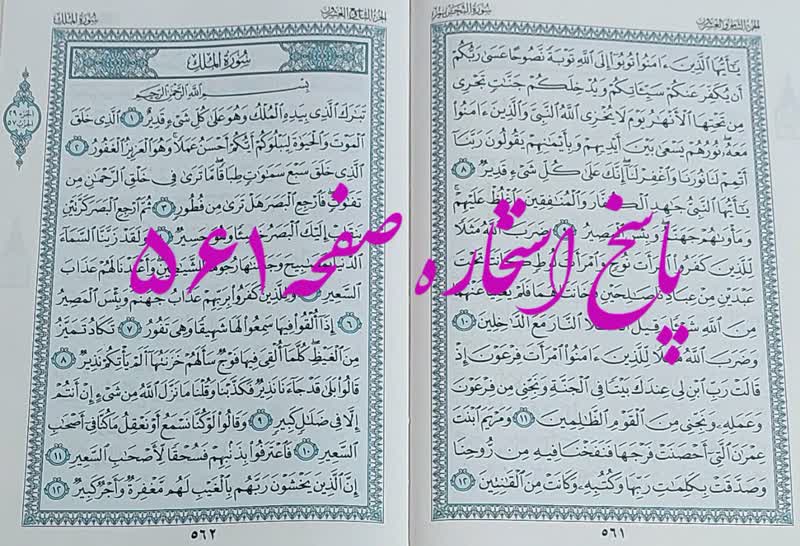 الجزء الثامن والعشرون
سورة التحريم
يَٰٓأَيُّهَا ٱلَّذِينَ ءَامَنُوا۟ تُوبُوٓا۟ إِلَى ٱللَّهِ تَوْبَةً نَّصُوحًا عَسَىٰ رَبُّكُمْ
أَن يُكَفِّرَ عَنكُمْ سَيِّـَٔاتِكُمْ وَيُدْخِلَكُمْ جَنَّٰتٍ تَجْرِى
مِن تَحْتِهَا ٱلْأَنْهَٰرُ يَوْمَ لَا يُخْزِى ٱللَّهُ ٱلنَّبِىَّ وَٱلَّذِينَ ءَامَنُوا۟
مَعَهُۥ نُورُهُمْ يَسْعَىٰ بَيْنَ أَيْدِيهِمْ وَبِأَيْمَٰنِهِمْ يَقُولُونَ رَبَّنَآ
أَتْمِمْ لَنَا نُورَنَا وَٱغْفِرْ لَنَآ إِنَّكَ عَلَىٰ كُلِّ شَىْءٍ قَدِيرٌ ٨
يَٰٓأَيُّهَا ٱلنَّبِىُّ جَٰهِدِ ٱلْكُفَّارَ وَٱلْمُنَٰفِقِينَ وَٱغْلُظْ عَلَيْهِمْ
وَمَأْوَىٰهُمْ جَهَنَّمُ وَبِئْسَ ٱلْمَصِيرُ ضَرَبَ ٱللَّهُ مَثَلًا
لِّلَّذِينَ كَفَرُوا۟ ٱمْرَأَتَ نُوحٍ تَحْتَ
عَبْدَيْنِ مِنْ عِبَادِنَا صَٰلِحَيْنِ فَلَمْ يُغْنِيَا عَنْهُمَا
مِنَ ٱللَّهِ شَيْـًٔا وَقِيلَ ٱدْخُلَا ٱلنَّارَ مَعَ ٱلدَّٰخِلِينَ ١٠
وَضَرَبَ ٱللَّهُ مَثَلًا لِّلَّذِينَ ءَامَنُوا۟ ٱمْرَأَتَ فِرْعَوْنَ إِذْ
قَالَتْ رَبِّ ٱبْنِ لِى عِندَكَ بَيْتًا فِى ٱلْجَنَّةِ وَنَجِّنِى مِن فِرْعَوْنَ
وَعَمَلِهِۦ وَنَجِّنِى مِنَ ٱلْقَوْمِ ٱلظَّٰلِمِينَ ١١ وَمَرْيَمَ ٱبْنَتَ
عِمْرَٰنَ ٱلَّتِىٓ أَحْصَنَتْ فَرْجَهَا فَنَفَخْنَا فِيهِ مِن رُّوحِنَا
وَصَدَّقَتْ بِكَلِمَٰتِ رَبِّهَا وَكُتُبِهِۦ وَكَانَتْ مِنَ ٱلْقَٰنِتِينَ ١٢
٥٦١
سورة الملك
سُورَةُ المُلْكِ
بِسْمِ اللَّهِ الرَّحْمَٰنِ الرَّحِيمِ
تَبَٰرَكَ ٱلَّذِى بِيَدِهِ ٱلْمُلْكُ وَهُوَ عَلَىٰ كُلِّ شَىْءٍ قَدِيرٌ ١ ٱلَّذِى خَلَقَ
ٱلْمَوْتَ وَٱلْحَيَوٰةَ لِيَبْلُوَكُمْ أَيُّكُمْ أَحْسَنُ عَمَلًا وَهُوَ ٱلْعَزِيزُ ٱلْغَفُورُ ٢
ٱلَّذِى خَلَقَ سَبْعَ سَمَٰوَٰتٍ طِبَاقًا مَّا تَرَىٰ فِى خَلْقِ ٱلرَّحْمَٰنِ مِن
تَفَٰوُتٍ فَٱرْجِعِ ٱلْبَصَرَ هَلْ تَرَىٰ مِن فُطُورٍ ٣ ثُمَّ ٱرْجِعِ ٱلْبَصَرَ كَرَّتَيْنِ
يَنقَلِبْ إِلَيْكَ ٱلْبَصَرُ وَهُوَ حَسِيرٌ وَلَقَدْ زَيَّنَّا ٱلسَّمَآءَ
ٱلدُّنْيَا بِمَصَٰبِيحَ وَجَعَلْنَٰهَا رُجُومًا لِّلشَّيَٰطِينِ وَأَعْتَدْنَا لَهُمْ عَذَابَ
ٱلسَّعِيرِ وَلِلَّذِينَ كَفَرُوا۟ بِرَبِّهِمْ عَذَابُ جَهَنَّمَ وَبِئْسَ ٱلْمَصِيرُ
٦ إِذَآ أُلْقُوا۟ فِيهَا سَمِعُوا۟ لَهَا شَهِيقًا وَهِىَ تَفُورُ ٧ تَكَادُ تَمَيَّزُ
مِنَ ٱلْغَيْظِ كُلَّمَآ أُلْقِىَ فِيهَا فَوْجٌ سَأَلَهُمْ خَزَنَتُهَآ أَلَمْ يَأْتِكُمْ نَذِيرٌ ٨
قَالُوا۟ بَلَىٰ قَدْ جَآءَنَا نَذِيرٌ فَكَذَّبْنَا وَقُلْنَا مَا نَزَّلَ ٱللَّهُ مِن شَىْءٍ إِنْ أَنتُمْ
إِلَّا فِى ضَلَٰلٍ كَبِيرٍ ٩ وَقَالُوا۟ لَوْ كُنَّا نَسْمَعُ أَوْ نَعْقِلُ مَا كُنَّا فِىٓ أَصْحَٰبِ
ٱلسَّعِيرِ ١٠ فَٱعْتَرَفُوا۟ بِذَنۢبِهِمْ فَسُحْقًا لِّأَصْحَٰبِ ٱلسَّعِيرِ ١١
إِنَّ ٱلَّذِينَ يَخْشَوْنَ رَبَّهُم بِٱلْغَيْبِ لَهُم مَّغْفِرَةٌ وَأَجْرٌ كَبِيرٌ ١٢
٥٦٢
پاسخ استخاره صفحه ۵۶۱